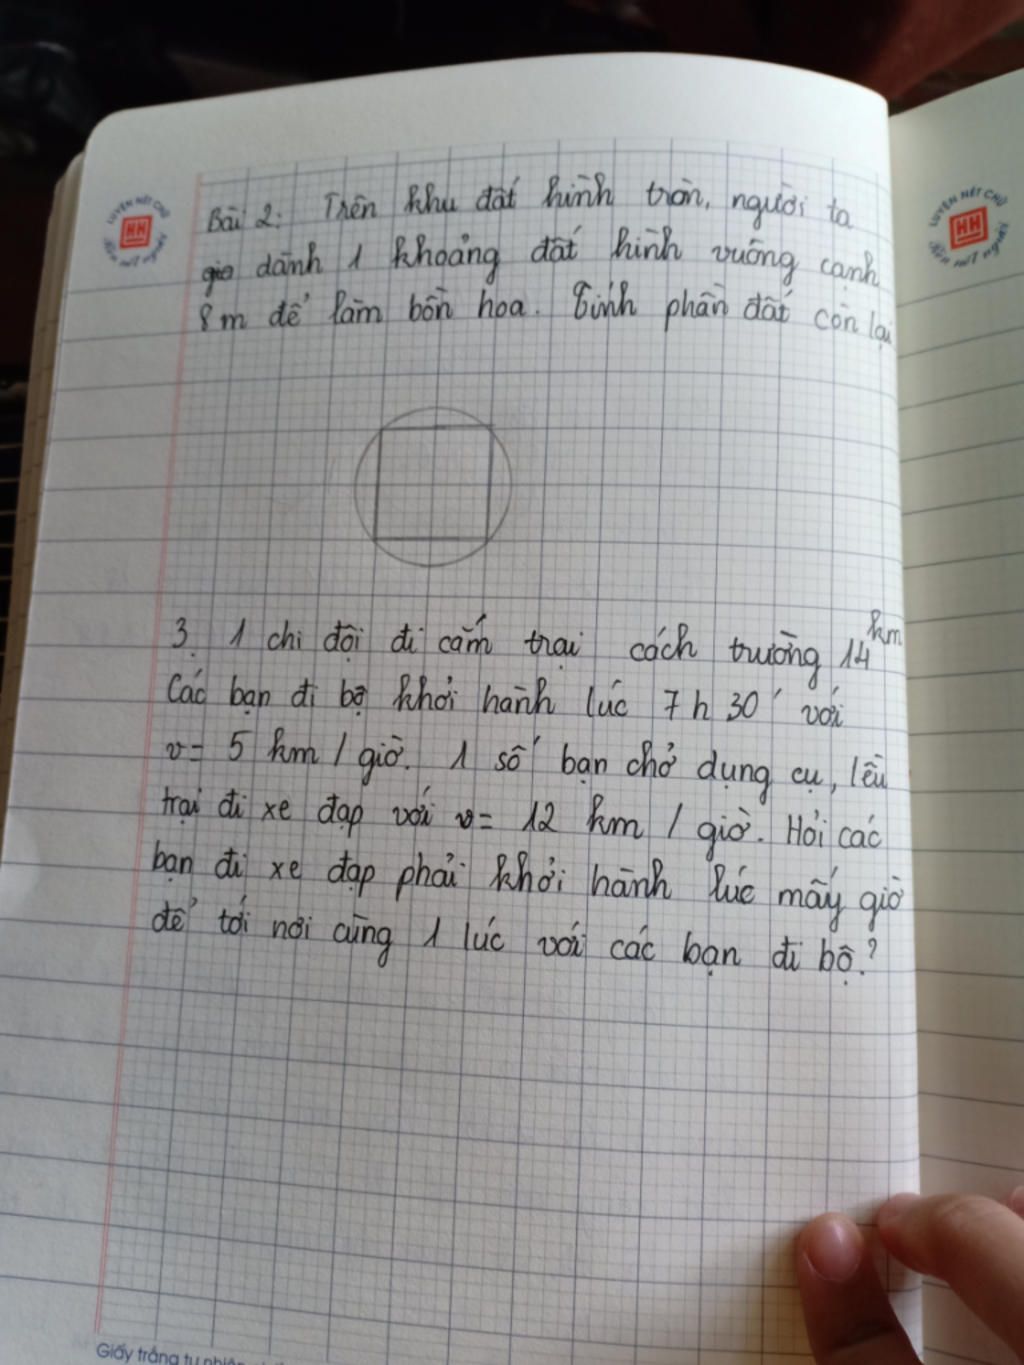 LUYỆN NÉT CHỮ
HH
Rèn nết người
LUYỆN NÉT CHỮ
HH
Rèn nết người
Bài 2: Trên khu đất hình tròn, người ta
dành 1 khoảng đất hình vuông cạnh
8m để làm bồn hoa. Tính phần đất còn lại
3. 1 chi đội đi cắm trại cách trường 14 km
Các bạn đi bộ khởi hành lúc 7h30' với
v= 5 km / giờ. 1 số bạn chở dụng cụ, lều
trại đi xe đạp với v= 12 km / giờ. Hỏi các
bạn đi xe đạp phải khởi hành lúc mấy giờ
để tới nơi cùng 1 lúc với các bạn đi bộ?
Giấy trắng tự nhiên